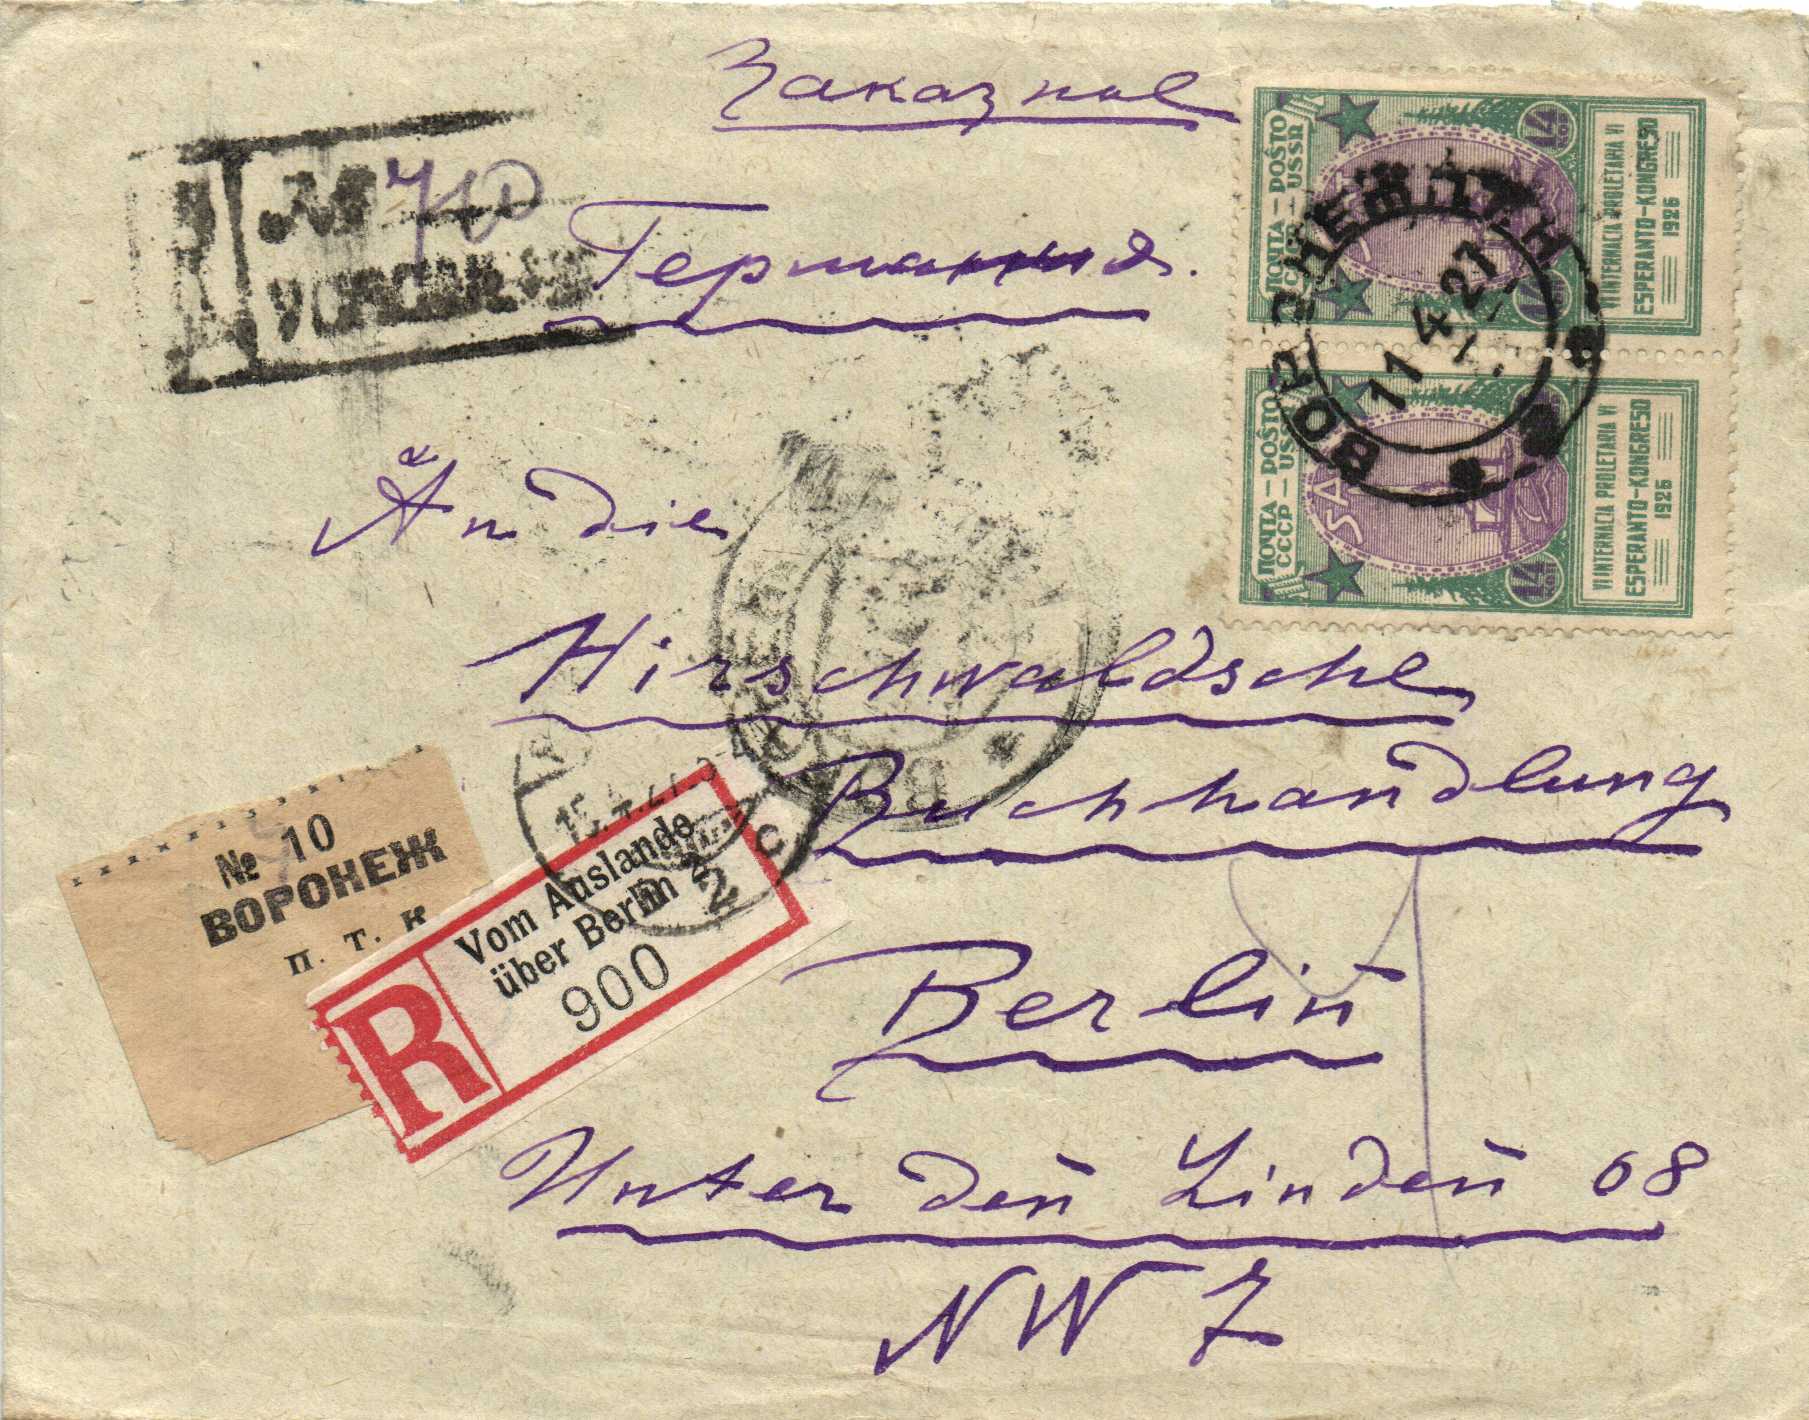 Заказное
№ 710
Германия.
An die
Hirschwaldsche
Buchhandlung
Berlin
Unter den Linden 68
NW 7
ПОЧТА – POŜTO
СССР – USSR
14 КОП
14 КОП
VI INTERNACIA PROLETARIA VI
ESPERANTO-KONGRESO
1926
ПОЧТА – POŜTO
СССР – USSR
14 КОП
14 КОП
VI INTERNACIA PROLETARIA VI
ESPERANTO-KONGRESO
1926
ВОРОНЕЖ
11 4 27
№ 10
ВОРОНЕЖ
П. Т. К
R
Vom Auslande
über Berlin 2
900